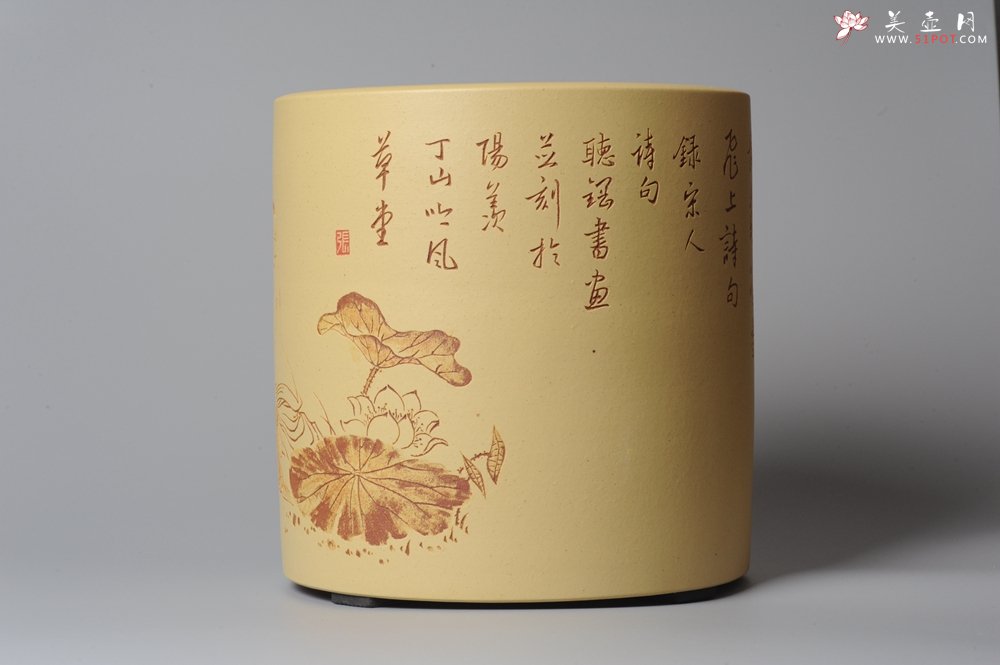 美壶网
WWW.51POT.COM
飛上詩句
録宋人
詩句
聽鋼書画
並刻於
陽羨
丁山吟風
草堂
張